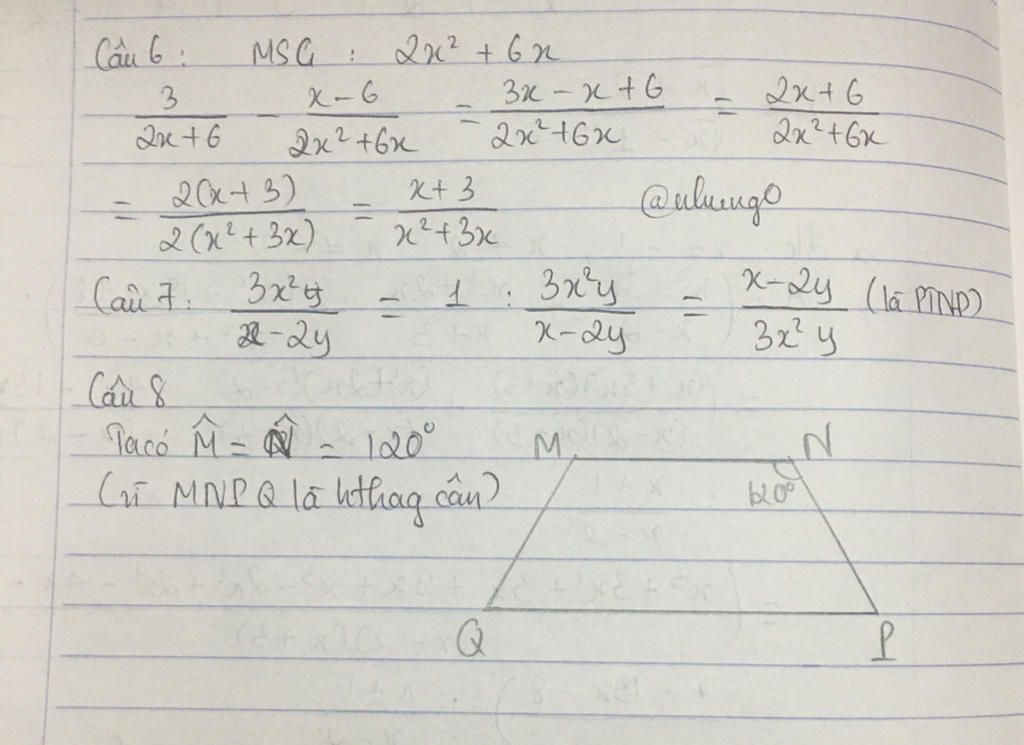 Câu 6: MSC: 2x² + 6x
3/(2x+6) - (x-6)/(2x²+6x) = (3x-x+6)/(2x²+6x) = (2x+6)/(2x²+6x)
= 2(x+3)/2(x²+3x) = (x+3)/(x²+3x)
Câu 7: 3x²y/(x-2y) = 1 : 3x²y/(x-2y) = (x-2y)/(3x²y) (là PTNĐ)
Câu 8
Ta có M̂ = N̂ = 120°
(vì MNPQ là hthag cân)
M N
120°
Q P